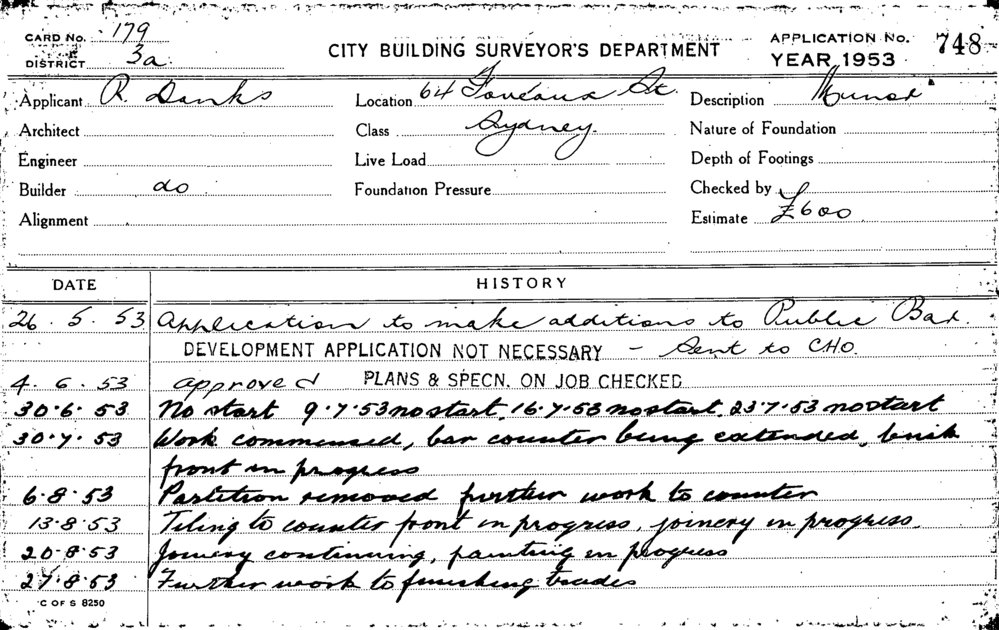 CARD No. 179
DISTRICT 3a.
CITY BUILDING SURVEYOR'S DEPARTMENT
APPLICATION No. 748
YEAR 1953
Applicant R. Danks
Location 64 Foveaux St.
Description Munor
Architect
Class Sydney.
Nature of Foundation
Engineer
Live Load
Depth of Footings
Builder do
Foundation Pressure
Checked by
Alignment
Estimate £600
DATE HISTORY
26. 5. 53 Application to make additions to Public Bar.
DEVELOPMENT APPLICATION NOT NECESSARY - Sent to CHO.
4. 6. 53 approved PLANS & SPECN. ON JOB CHECKED
30.6.53 No start 9.7.53 no start, 16.7.53 no start, 23.7.53 no start
30.7.53 Work commensed, bar counter being extended, brick
front in progress
6.8.53 Partition removed further work to counter
13.8.53 Tiling to counter front in progress, joinery in progress.
20.8.53 Joinery continuing, painting in progress
27.8.53 Further work to finishing trades
C OF S 8250